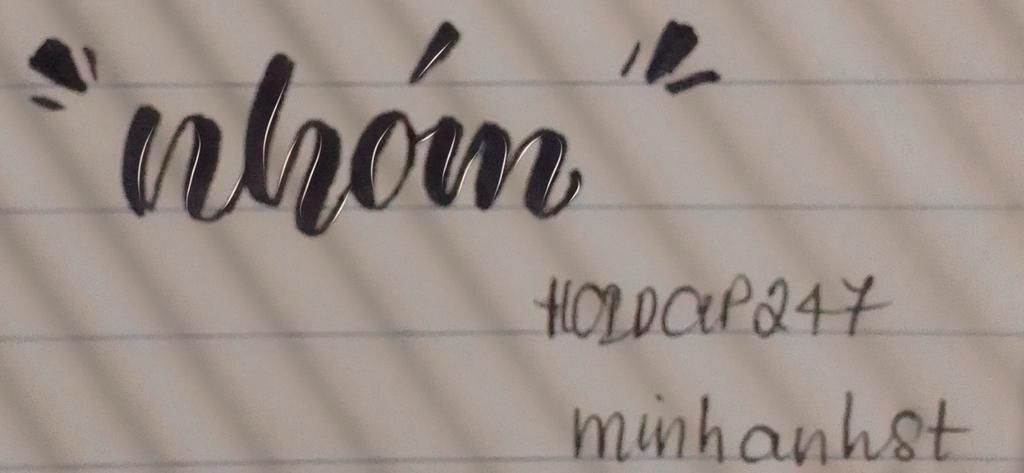 "nhóm"
HOIDAP247
minhanhst